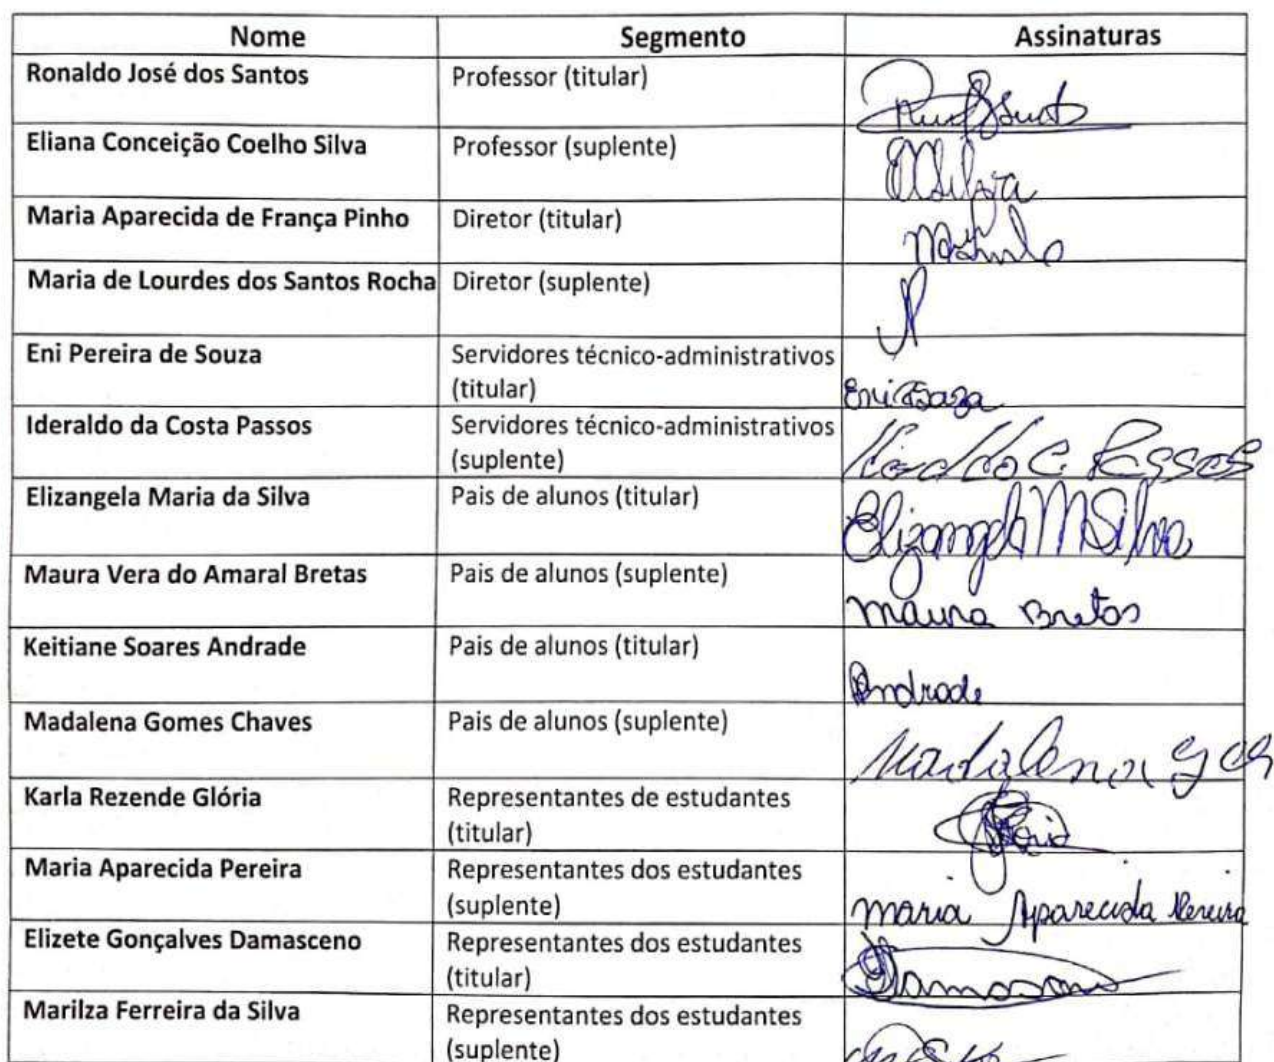 Nome Segmento Assinaturas
Ronaldo José dos Santos Professor (titular)
Eliana Conceição Coelho Silva Professor (suplente) MSilva
Maria Aparecida de França Pinho Diretor (titular)
Maria de Lourdes dos Santos Rocha Diretor (suplente)
Eni Pereira de Souza Servidores técnico-administrativos
(titular) Eni
Ideraldo da Costa Passos Servidores técnico-administrativos
(suplente) C. Passos
Elizangela Maria da Silva Pais de alunos (titular) Elizangela M Silva
Maura Vera do Amaral Bretas Pais de alunos (suplente)
Maura Bretas
Keitiane Soares Andrade Pais de alunos (titular)
Andrade
Madalena Gomes Chaves Pais de alunos (suplente)
Madalena g ch
Karla Rezende Glória Representantes de estudantes
(titular)
Maria Aparecida Pereira Representantes dos estudantes
(suplente) Maria Aparecida Pereira
Elizete Gonçalves Damasceno Representantes dos estudantes
(titular)
Marilza Ferreira da Silva Representantes dos estudantes
(suplente)